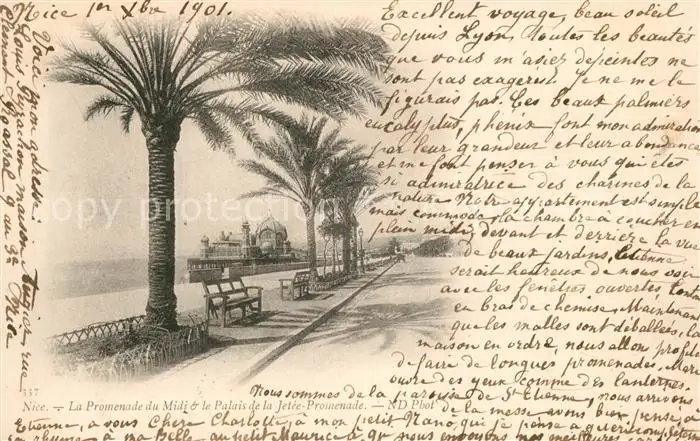 Nice 1er Xbre 1901.
Excellent voyage, beau soleil
depuis Lyon, Toutes les beautés
que vous m'aviez dépeintes ne
sont pas exagérées je ne me le
figurais pas. Les beaux palmiers
eucalyptus, phénix font mon admiration
par leur grandeur et leur abondance
et me font penser à vous qui êtes
si admiratrice des charmes de la
nature. Notre appartement est simple
mais commode, la chambre à coucher en
plein midi, devant et derrière la vue
de beaux jardins, Etienne
serait heureux de nous voir
avec les fenêtres ouvertes tout
en bras de chemise. Maintenant
que les malles sont déballées, la
maison en ordre, nous allons profiter
de faire de longues promenades, Marie
ouvre des yeux comme des lanternes.
Nous sommes de la paroisse de St Etienne, nous arrivons
de la messe avons bien pensé à
Etienne, à vous Chère Charlotte, à mon petit Nano, que je pense a guéri
son rhume à ma Belle, au petit Maurice à qui nous envoyons
Voici mon adresse
Louis maison rue
Clément 9 au 2e Nice
337
Nice. — La Promenade du Midi & le Palais de la Jetée-Promenade. — ND Phot
copy protection